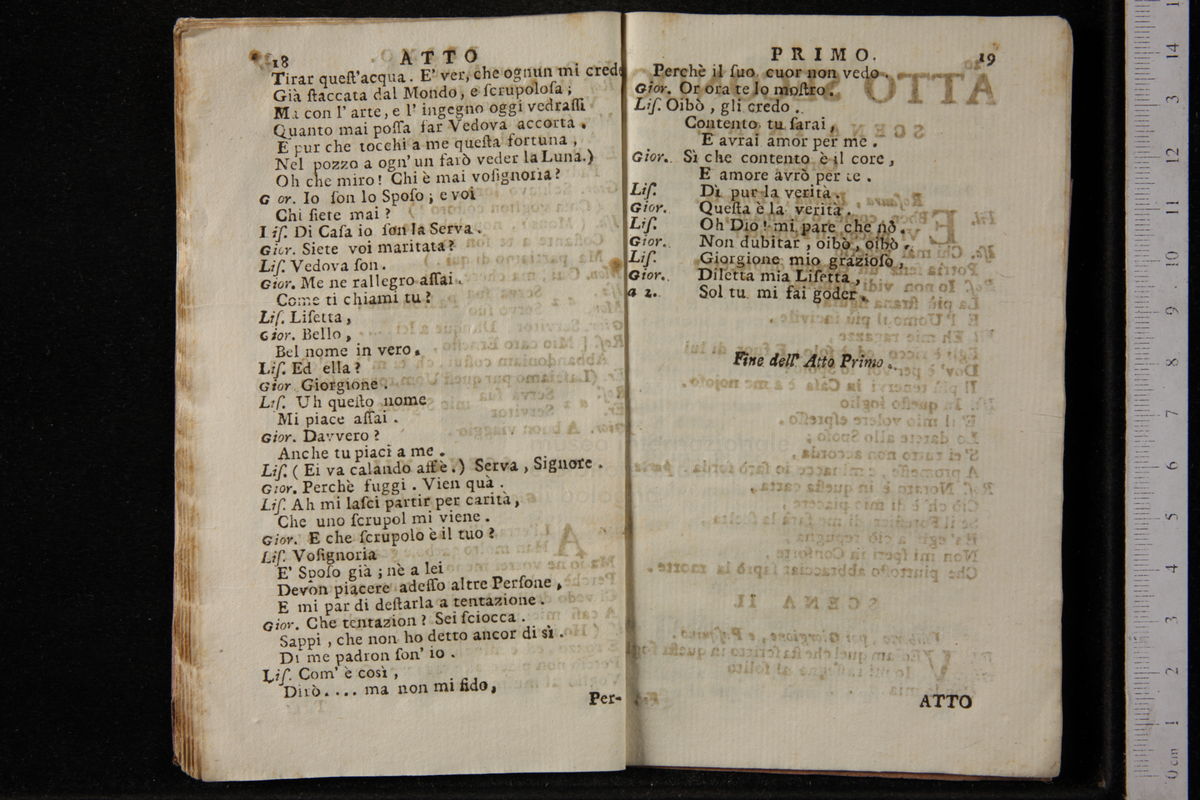 18 ATTO
Tirar queſt'acqua. E' ver, che ognun mi crede
Già ſtaccata dal Mondo, e ſcrupoloſa;
Ma con l'arte, e l'ingegno oggi vedraſſi
Quanto mai poſſa far Vedova accorta.
E pur che tocchi a me queſta fortuna,
Nel pozzo a ogn'un farò veder la Luna.)
Oh che miro! Chi è mai voſignoria?
G or. Io ſon lo Spoſo; e voi
Chi ſiete mai?
Liſ. Di Caſa io ſon la Serva.
Gior. Siete voi maritata?
Liſ. Vedova ſon.
Gior. Me ne rallegro aſſai.
Come ti chiami tu?
Liſ. Liſetta,
Gior. Bello,
Bel nome in vero.
Liſ. Ed ella?
Gior Giorgione.
Liſ. Uh queſto nome
Mi piace aſſai.
Gior. Davvero?
Anche tu piaci a me.
Liſ. (Ei va calando affè.) Serva, Signore.
Gior. Perchè fuggi. Vien quà.
Liſ. Ah mi laſci partir per carità,
Che uno ſcrupol mi viene.
Gior. E che ſcrupolo è il tuo?
Liſ. Voſignoria
E' Spoſo già; nè a lei
Devon piacere adeſſo altre Perſone,
E mi par di deſtarla a tentazione.
Gior. Che tentazion? Sei ſciocca.
Sappi, che non ho detto ancor di sì.
Di me padron ſon' io.
Liſ. Com' è così,
Dirò.... ma non mi fido,
Per-
PRIMO. 19
Perchè il ſuo cuor non vedo.
Gior. Or ora te lo moſtro.
Liſ. Oibò, gli credo.
Contento tu ſarai,
E avrai amor per me.
Gior. Sì che contento è il core,
E amore avrò per te.
Liſ. Dì pur la verità.
Gior. Queſta è la verità.
Liſ. Oh Dio! mi pare che nò.
Gior. Non dubitar, oibò, oibò.
Liſ. Giorgione mio grazioſo,
Gior. Diletta mia Liſetta,
a 2. Sol tu mi fai goder.
Fine dell' Atto Primo.
ATTO
14
13
12
11
10
9
8
7
6
5
4
3
2
1
0 cm